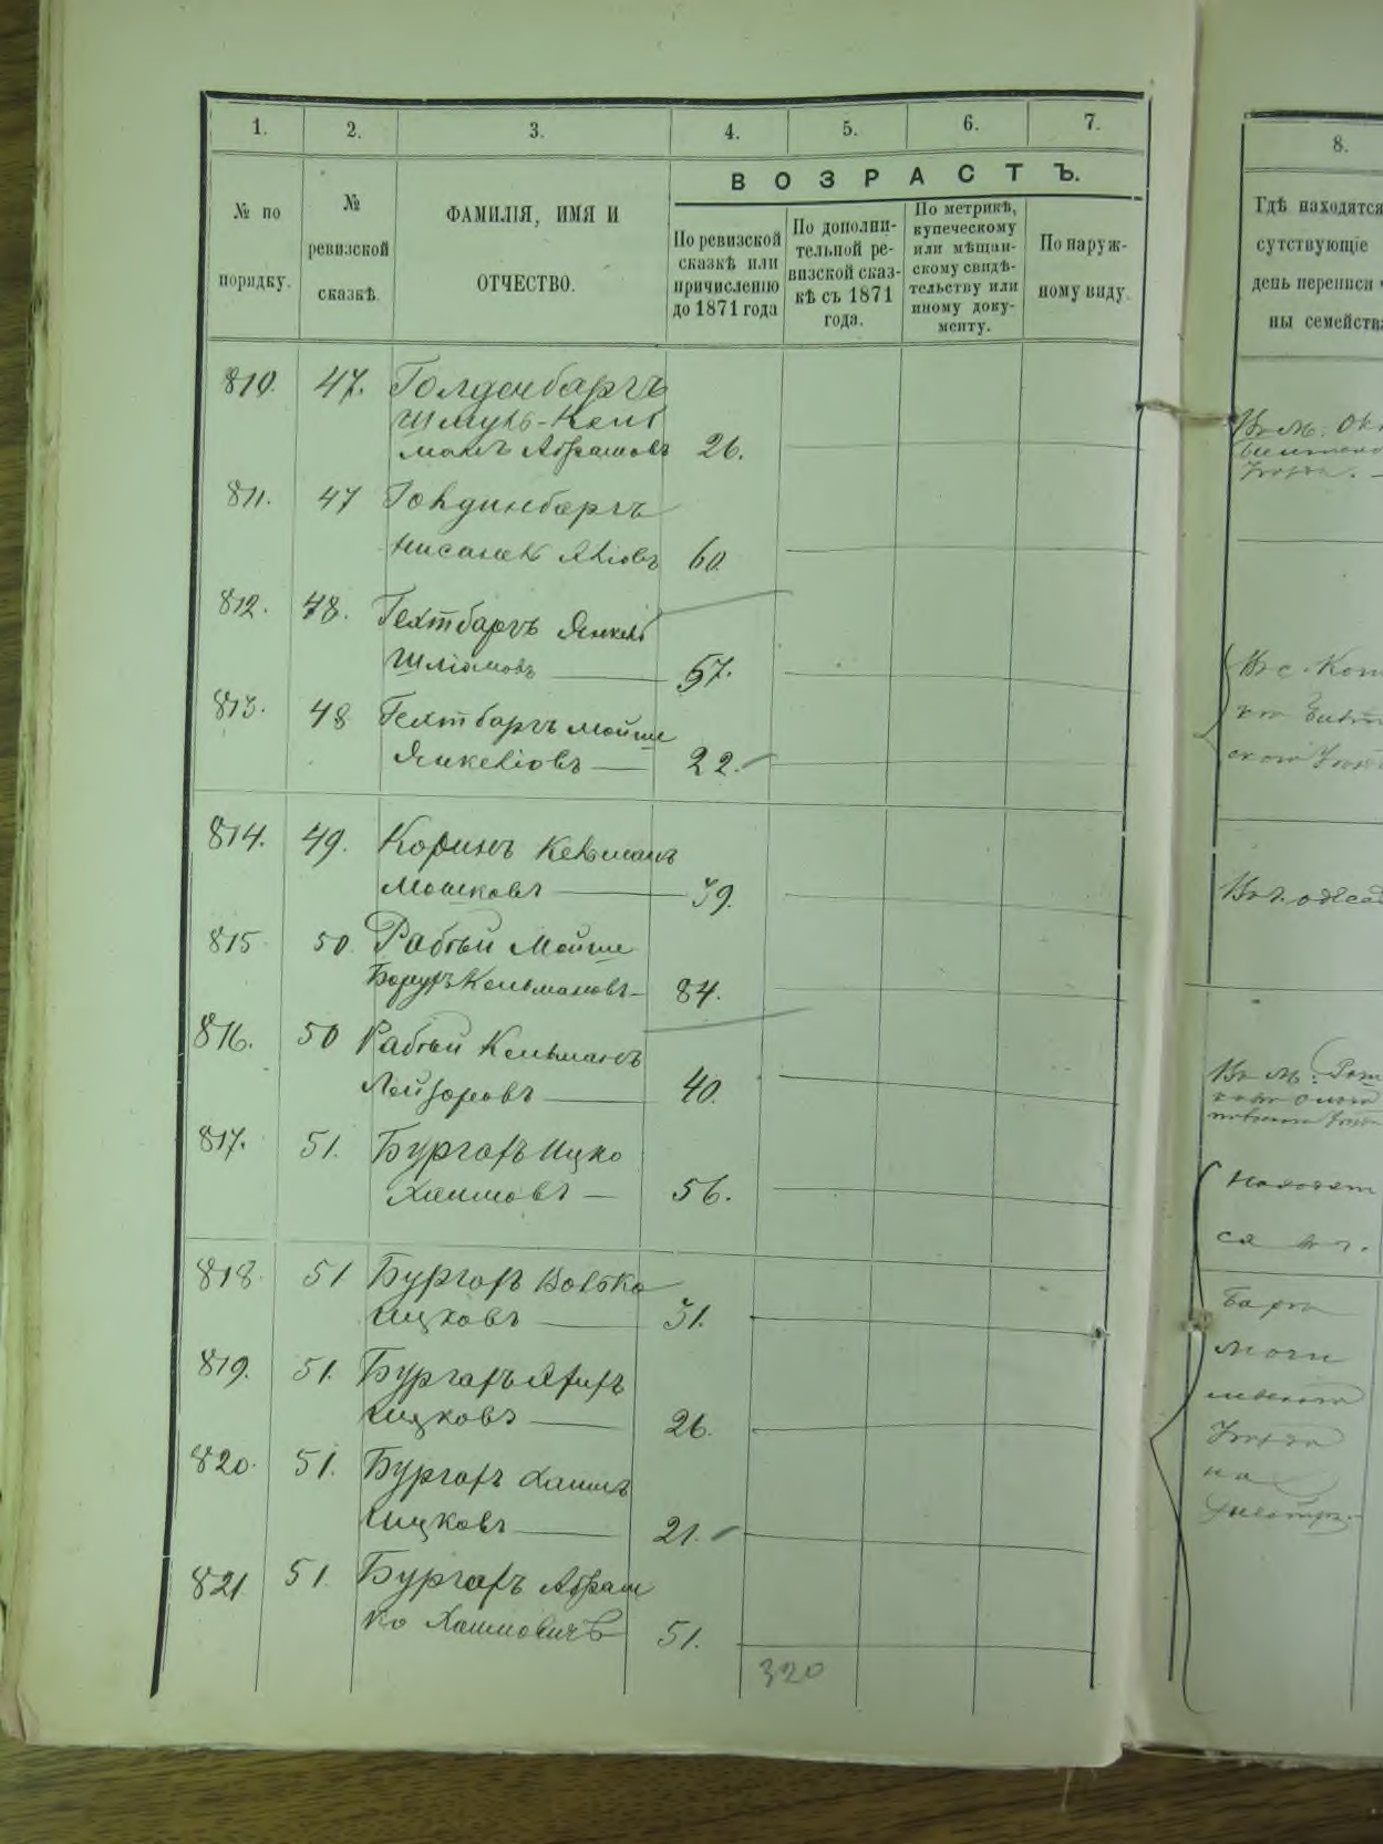 1. 2. 3. 4. 5. 6. 7.
ВОЗРАСТЪ.
№ по порядку.
№ ревизской сказкѣ.
ФАМИЛІЯ, ИМЯ И ОТЧЕСТВО.
По ревизской сказкѣ или причисленію до 1871 года
По дополни-
тельной ре-
визской сказ-
кѣ съ 1871
года.
По метрикѣ,
купеческому
или мѣщан-
скому свидѣ-
тельству или
иному доку-
менту.
По наруж-
ному виду.
810. 47. Голденбаргъ
Шмуль-Кель
манъ Абрамовъ 26.
811. 47 Гольдинбаргъ
Нисанель Яклов 60.
812. 48. Гехтбаргъ Янкель
Шліомовъ 57.
813. 48 Гехтбаргъ Мойше
Янкеліовъ 22.
814. 49. Коринъ Кельманъ
Мошковъ 39.
815 50. Рабый Мойше
Борухъ Кельмановъ 84.
816. 50 Рабый Кельманъ
Лейзоровъ 40.
817. 51. Бургаръ Ицко
Хаимовъ 56.
818. 51 Бургаръ Волько
Ицковъ 31.
819. 51. Бургаръ
Ицковъ 26.
820. 51. Бургаръ Хаимъ
Ицковъ 21.
821 51. Бургаръ Абраш
ко Хаимовичъ 51.
320
8.
Гдѣ находятся
сутствующіе
день переписи ч
ны семейства
Въ м.
Въ с.
Въ г. Одес
Въ м.
Находят
ся въ г.
Барѣ
Моги
левскаго
Уѣзда
на
Днестрѣ.